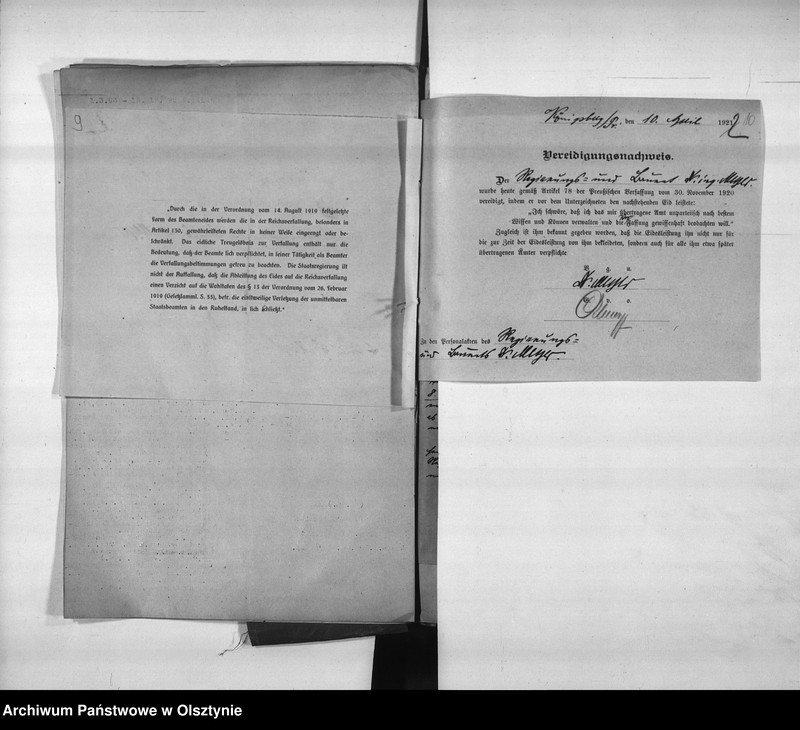 9
„Durch die in der Verordnung vom 14. August 1919 festgesetzte
Form des Beamteneides werden die in der Reichsverfassung, besonders in
Artikel 130, gewährleisteten Rechte in keiner Weise eingeengt oder be-
schränkt. Das eidliche Treugelöbnis zur Verfassung enthält nur die
Bedeutung, daß der Beamte sich verpflichtet, in seiner Tätigkeit als Beamter
die Verfassungsbestimmungen getreu zu beachten. Die Staatsregierung ist
nicht der Auffassung, daß die Ableistung des Eides auf die Reichsverfassung
einen Verzicht auf die Wohltaten des § 15 der Verordnung vom 26. Februar
1919 (Gesetzsamml. S. 33), betr. die einstweilige Versetzung der unmittelbaren
Staatsbeamten in den Ruhestand, in sich schließt.“
Königsberg/Pr. den 10. April 1922
10
Vereidigungsnachweis.
Der Regierungs- und Baurat Dr. ing.
wurde heute gemäß Artikel 78 der Preußischen Verfassung vom 30. November 1920
vereidigt, indem er vor dem Unterzeichneten den nachstehenden Eid leistete:
„Ich schwöre, daß ich das mir übertragene Amt unparteiisch nach bestem
Wissen und Können verwalten und die Verfassung gewissenhaft beobachten will.“
Zugleich ist ihm bekannt gegeben worden, daß die Eidesleistung ihn nicht nur für
die zur Zeit der Eidesleistung von ihm bekleideten, sondern auch für alle ihm etwa später
übertragenen Ämter verpflichte
V. g. u.
Dr.
G. w. o.
Zu den Personalakten des Regierungs-
und Baurats Dr.
Archiwum Państwowe w Olsztynie